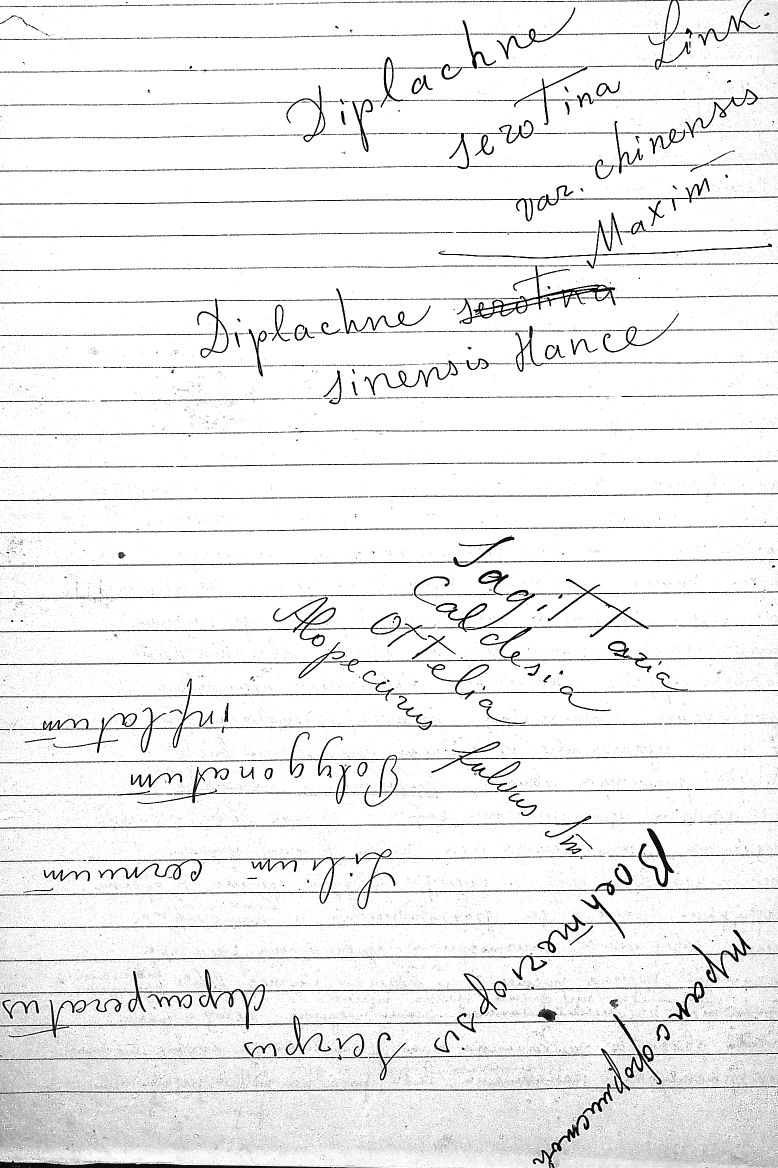 Diplachne
serotina Link.
var. chinensis
Maxim.
Diplachne serotina
sinensis Hance
Sagittaria
Caldesia
Ottelia
Alopecurus fulvus Sm.
Polygonatum
inflatum
Lilium cernuum
Scirpus
depauperatus
Boehmeriopsis